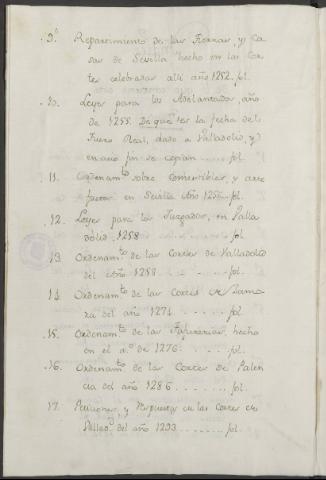 .9.º Repartimiento de las Tierras, y Ca-
sas de Sevilla hecho en las Cor-
tes celebradas alli año 1252. fol.
10. Leyes para los Adelantados, año
de 1255. De que es la fecha del
Fuero Real, dado a Valladolid, y
en cuio fin se copian ..... fol.
11. Ordenam.to sobre comestibles, y arte
facros en Sevilla año 1256. fol.
12. Leyes para los Juzgados, en Valla
dolid, 1258 ........ fol.
13. Ordenam.to de las Cortes de Valladolid
del año 1258. ...... fol.
14. Ordenam.to de las Cortes de Zamo
ra del año 1274 ...... fol.
.15. Ordenam.to de las Tafurerias, hecho
en el a.º de 1276. ..... fol.
.16. Ordenam.to de las Cortes de Palen
cia del año 1286 ...... fol.
17. Peticiones, y Respuestas en las Cortes de
Vallad.d del año 1293 ....... fol.